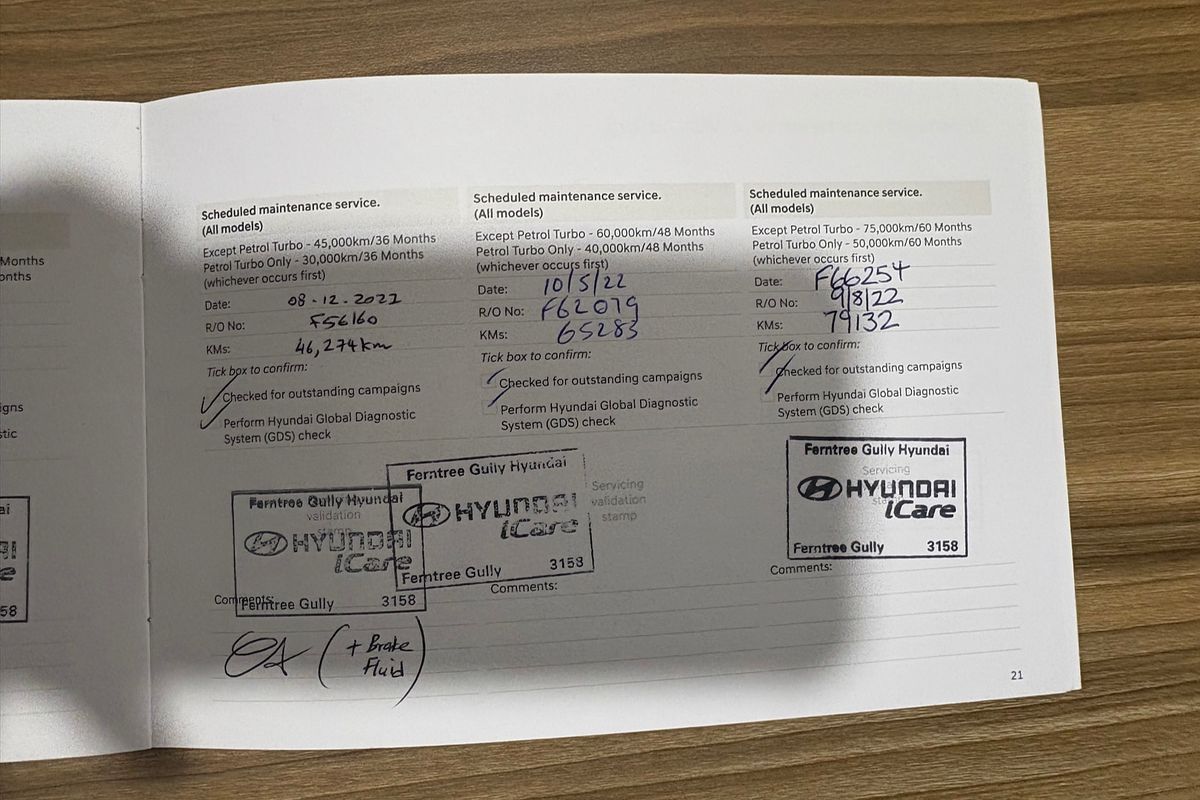 Months
onths
igns
stic
ai
58
Scheduled maintenance service.
(All models)
Except Petrol Turbo - 45,000km/36 Months
Petrol Turbo Only - 30,000km/36 Months
(whichever occurs first)
Date: 08-12-2022
R/O No: F56160
KMs: 46,274km
Tick box to confirm:
Checked for outstanding campaigns
Perform Hyundai Global Diagnostic
System (GDS) check
Ferntree Gully Hyundai
validation
HYUNDAI
iCare
Ferntree Gully 3158
Comments:
(+ Brake
Fluid)
Scheduled maintenance service.
(All models)
Except Petrol Turbo - 60,000km/48 Months
Petrol Turbo Only - 40,000km/48 Months
(whichever occurs first)
Date: 10/5/22
R/O No: F62079
KMs: 65283
Tick box to confirm:
Checked for outstanding campaigns
Perform Hyundai Global Diagnostic
System (GDS) check
Ferntree Gully Hyundai
HYUNDAI
iCare
Ferntree Gully 3158
Servicing
validation
stamp
Comments:
Scheduled maintenance service.
(All models)
Except Petrol Turbo - 75,000km/60 Months
Petrol Turbo Only - 50,000km/60 Months
(whichever occurs first)
Date: F66254
R/O No: 9/8/22
KMs: 79132
Tick box to confirm:
Checked for outstanding campaigns
Perform Hyundai Global Diagnostic
System (GDS) check
Ferntree Gully Hyundai
Servicing
HYUNDAI
iCare
Ferntree Gully 3158
Comments:
21